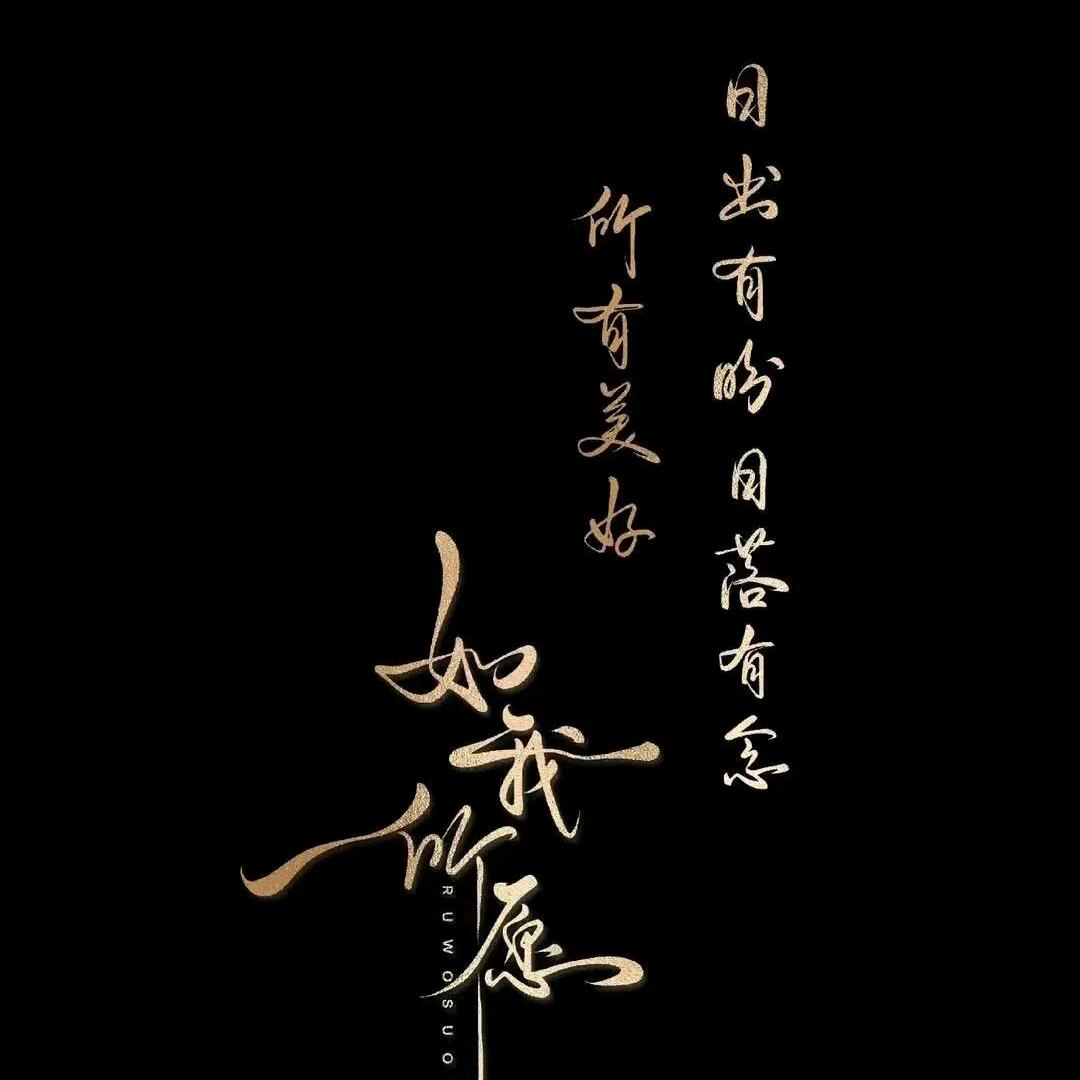 日出有盼日落有念
所有美好
如我所愿
RUWOSUO